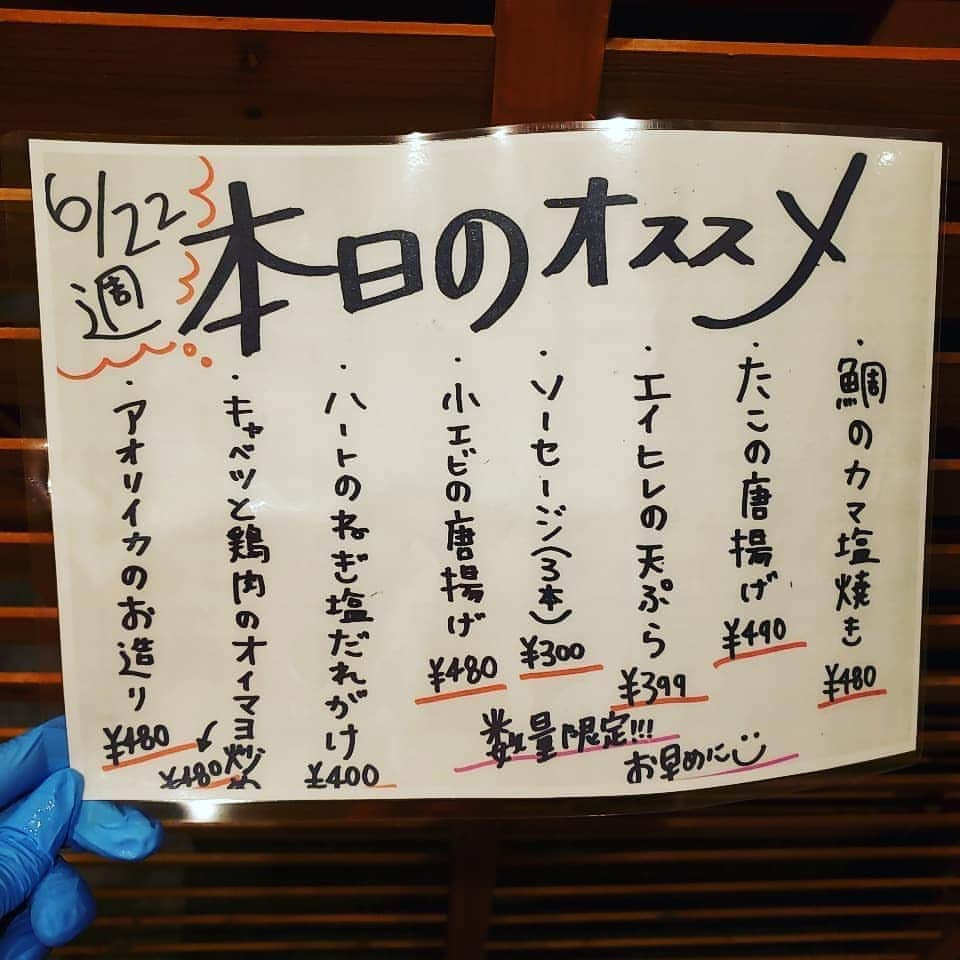 6/22
週
本日のオススメ
・鯛のカマ塩焼き ¥480
・たこの唐揚げ ¥490
・エイヒレの天ぷら ¥399
・ソーセージ(3本) ¥300
・小エビの唐揚げ ¥480
・ハートのねぎ塩だれがけ ¥400
・キャベツと鶏肉のオイマヨ炒め ¥480
・アオリイカのお造り ¥480
数量限定!!!
お早めに